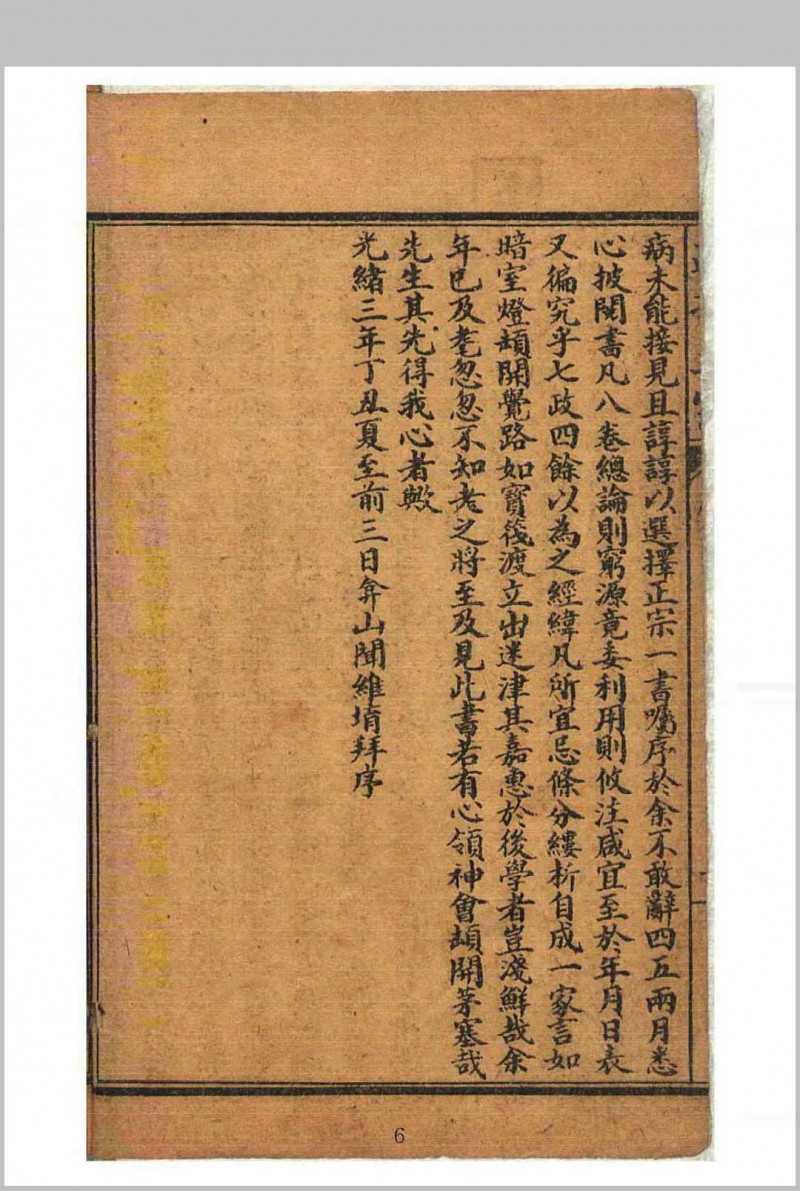 病未能接見且諄諄以選擇正宗一書囑序於余不敢辭四五兩月悉
心披閱書凡八卷總論則窮源竟委利用則攸注咸宜至於年月日表
又徧究乎七政四餘以為之經緯凡所宜忌條分縷析自成一家言如
暗室燈頡開覺路如寶筏渡立出迷津其嘉惠於後學者豈淺鮮哉余
年已及耄忽忽不知老之將至及見此書若有心領神會頡開茅塞哉
先生其先得我心者歟
光緒三年丁丑夏至前三日弇山聞維堉拜序
6